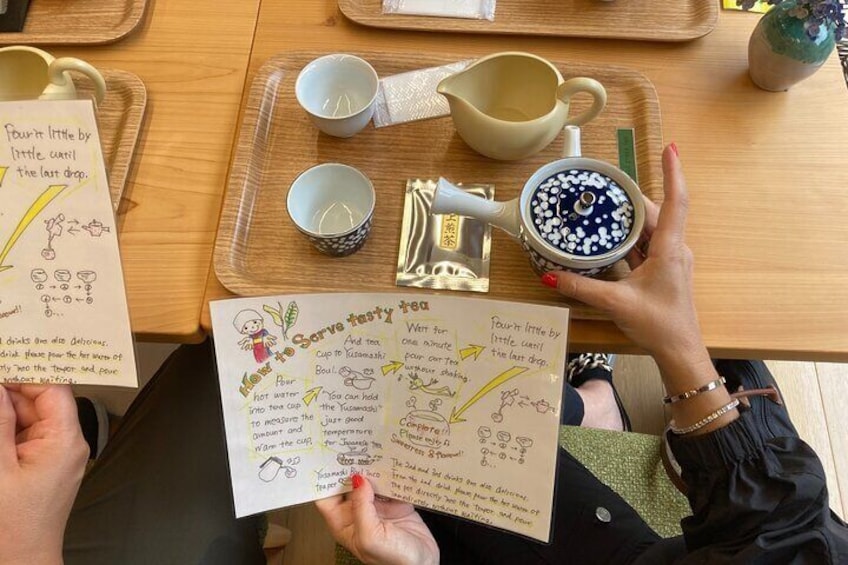 Pour it little by
little until
the last drop.
上煎茶
How to Serve tasty tea
Pour
hot water
into tea cup
to measure the
amount and
warm the cup.
And tea
cup to Yusamashi
Boul.
You can hold
the Yusamashi
just good
temperature
for Japanese tea
Yusamashi Boul into
teapor
Wait for
one minute
pour cor tea
without shaking.
Complete!!
Please tasty
Sweetness & flavour!
Pour it little by
little until
the last drop.
The 2nd and 3rd drinks are also delicious.
From the 2nd drink, please pour the hot water of
the pot directly into the teapor and pour
immediately without waiting.
drinks are also delicious.
drink please pour the hot water of
into the teapor and pour
without waiting